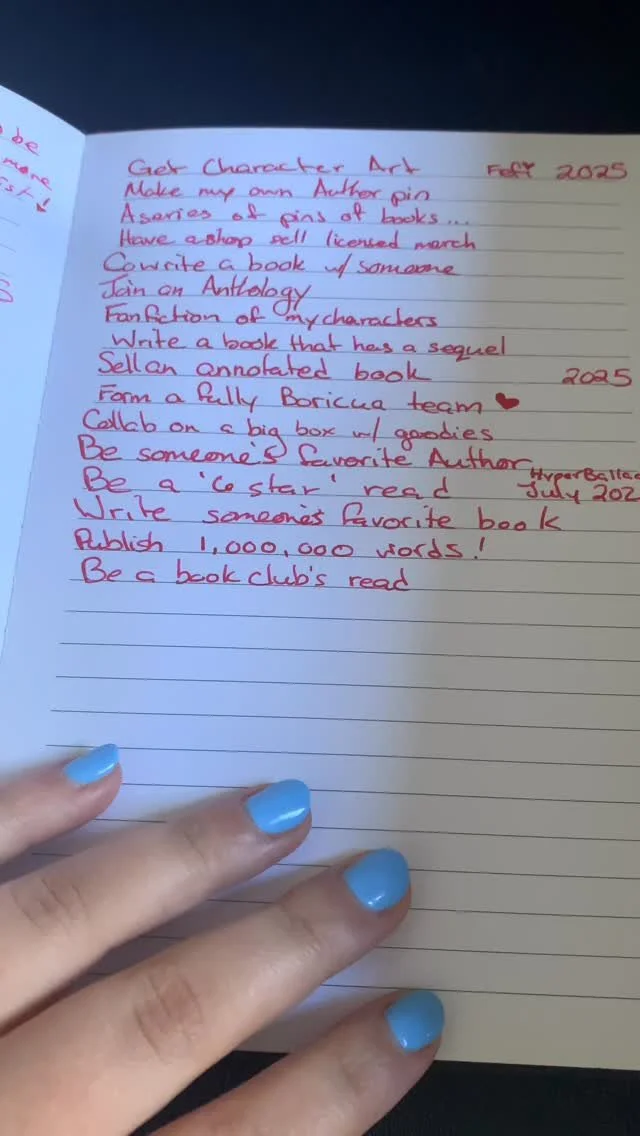 be
more
Get Character Art 2025
Make my own Author pin
A series of pins of books...
Have a shop sell licensed march
Cowrite a book w/ someone
Join an Anthology
Fanfiction of my characters
Write a book that has a sequel
Sell an annotated book 2025
Form a fully Boricua team ♥
Collab on a big box w/ goodies
Be someone's favorite Author
Be a '6 star' read July 202
Write someone's favorite book
Publish 1,000,000 words!
Be a book club's read